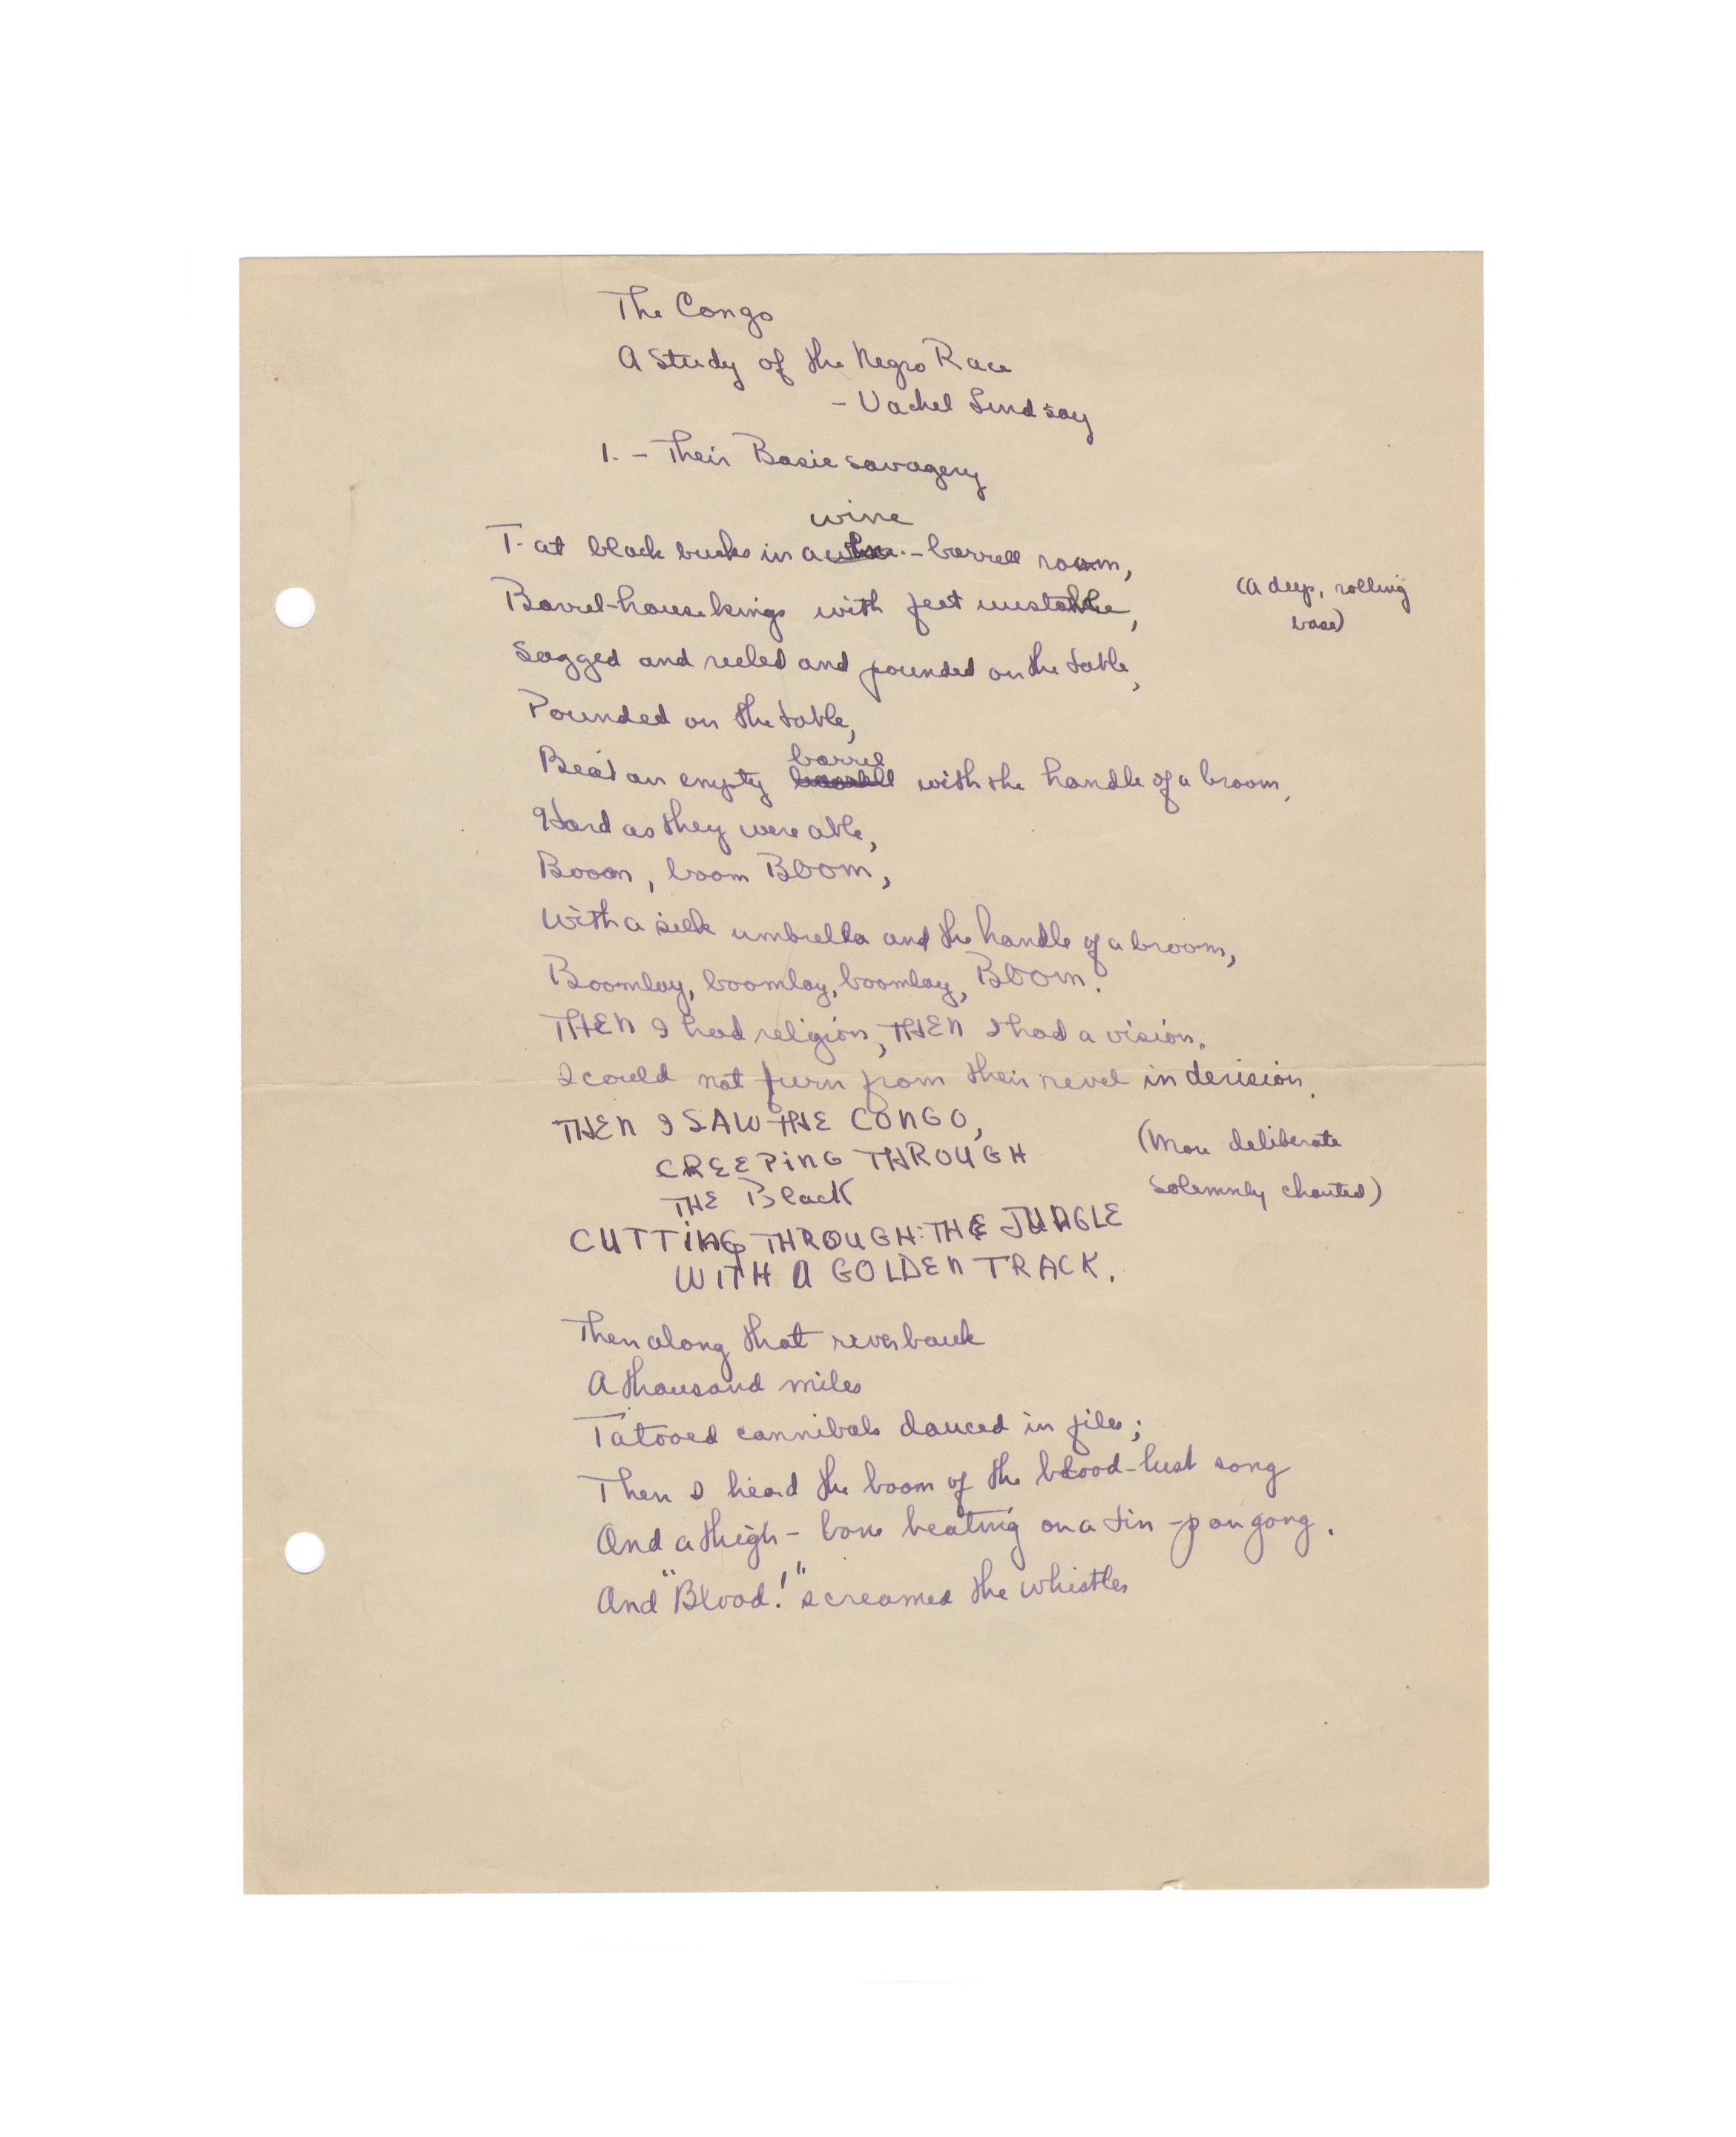 The Congo
A Study of the Negro Race
- Vachel Lindsay
1. - Their Basic savagery
wine
T-at black bucks in a - barrell room,
(A deep, rolling
base)
Barrel-house kings with feet unstable,
Sagged and reeled and pounded on the table,
Pounded on the table,
barrel
Beat an empty barrell with the handle of a broom,
Hard as they were able,
Booom, boom Bloom,
With a silk umbrella and the handle of a broom,
Boomlay, boomlay, boomlay, Bloom.
THEN I had religion, THEN I had a vision.
I could not turn from their revel in derision.
THEN I SAW THE CONGO,
CREEPING THROUGH
THE Black
(More deliberate
Solemnly chanted)
CUTTING THROUGH THE JUNGLE
WITH A GOLDEN TRACK.
Then along that riverbank
A thousand miles
Tatooed cannibals danced in files;
Then I heard the boom of the blood-lust song
And a thigh-bone beating on a tin-pan gong.
And "Blood!" screamed the whistles